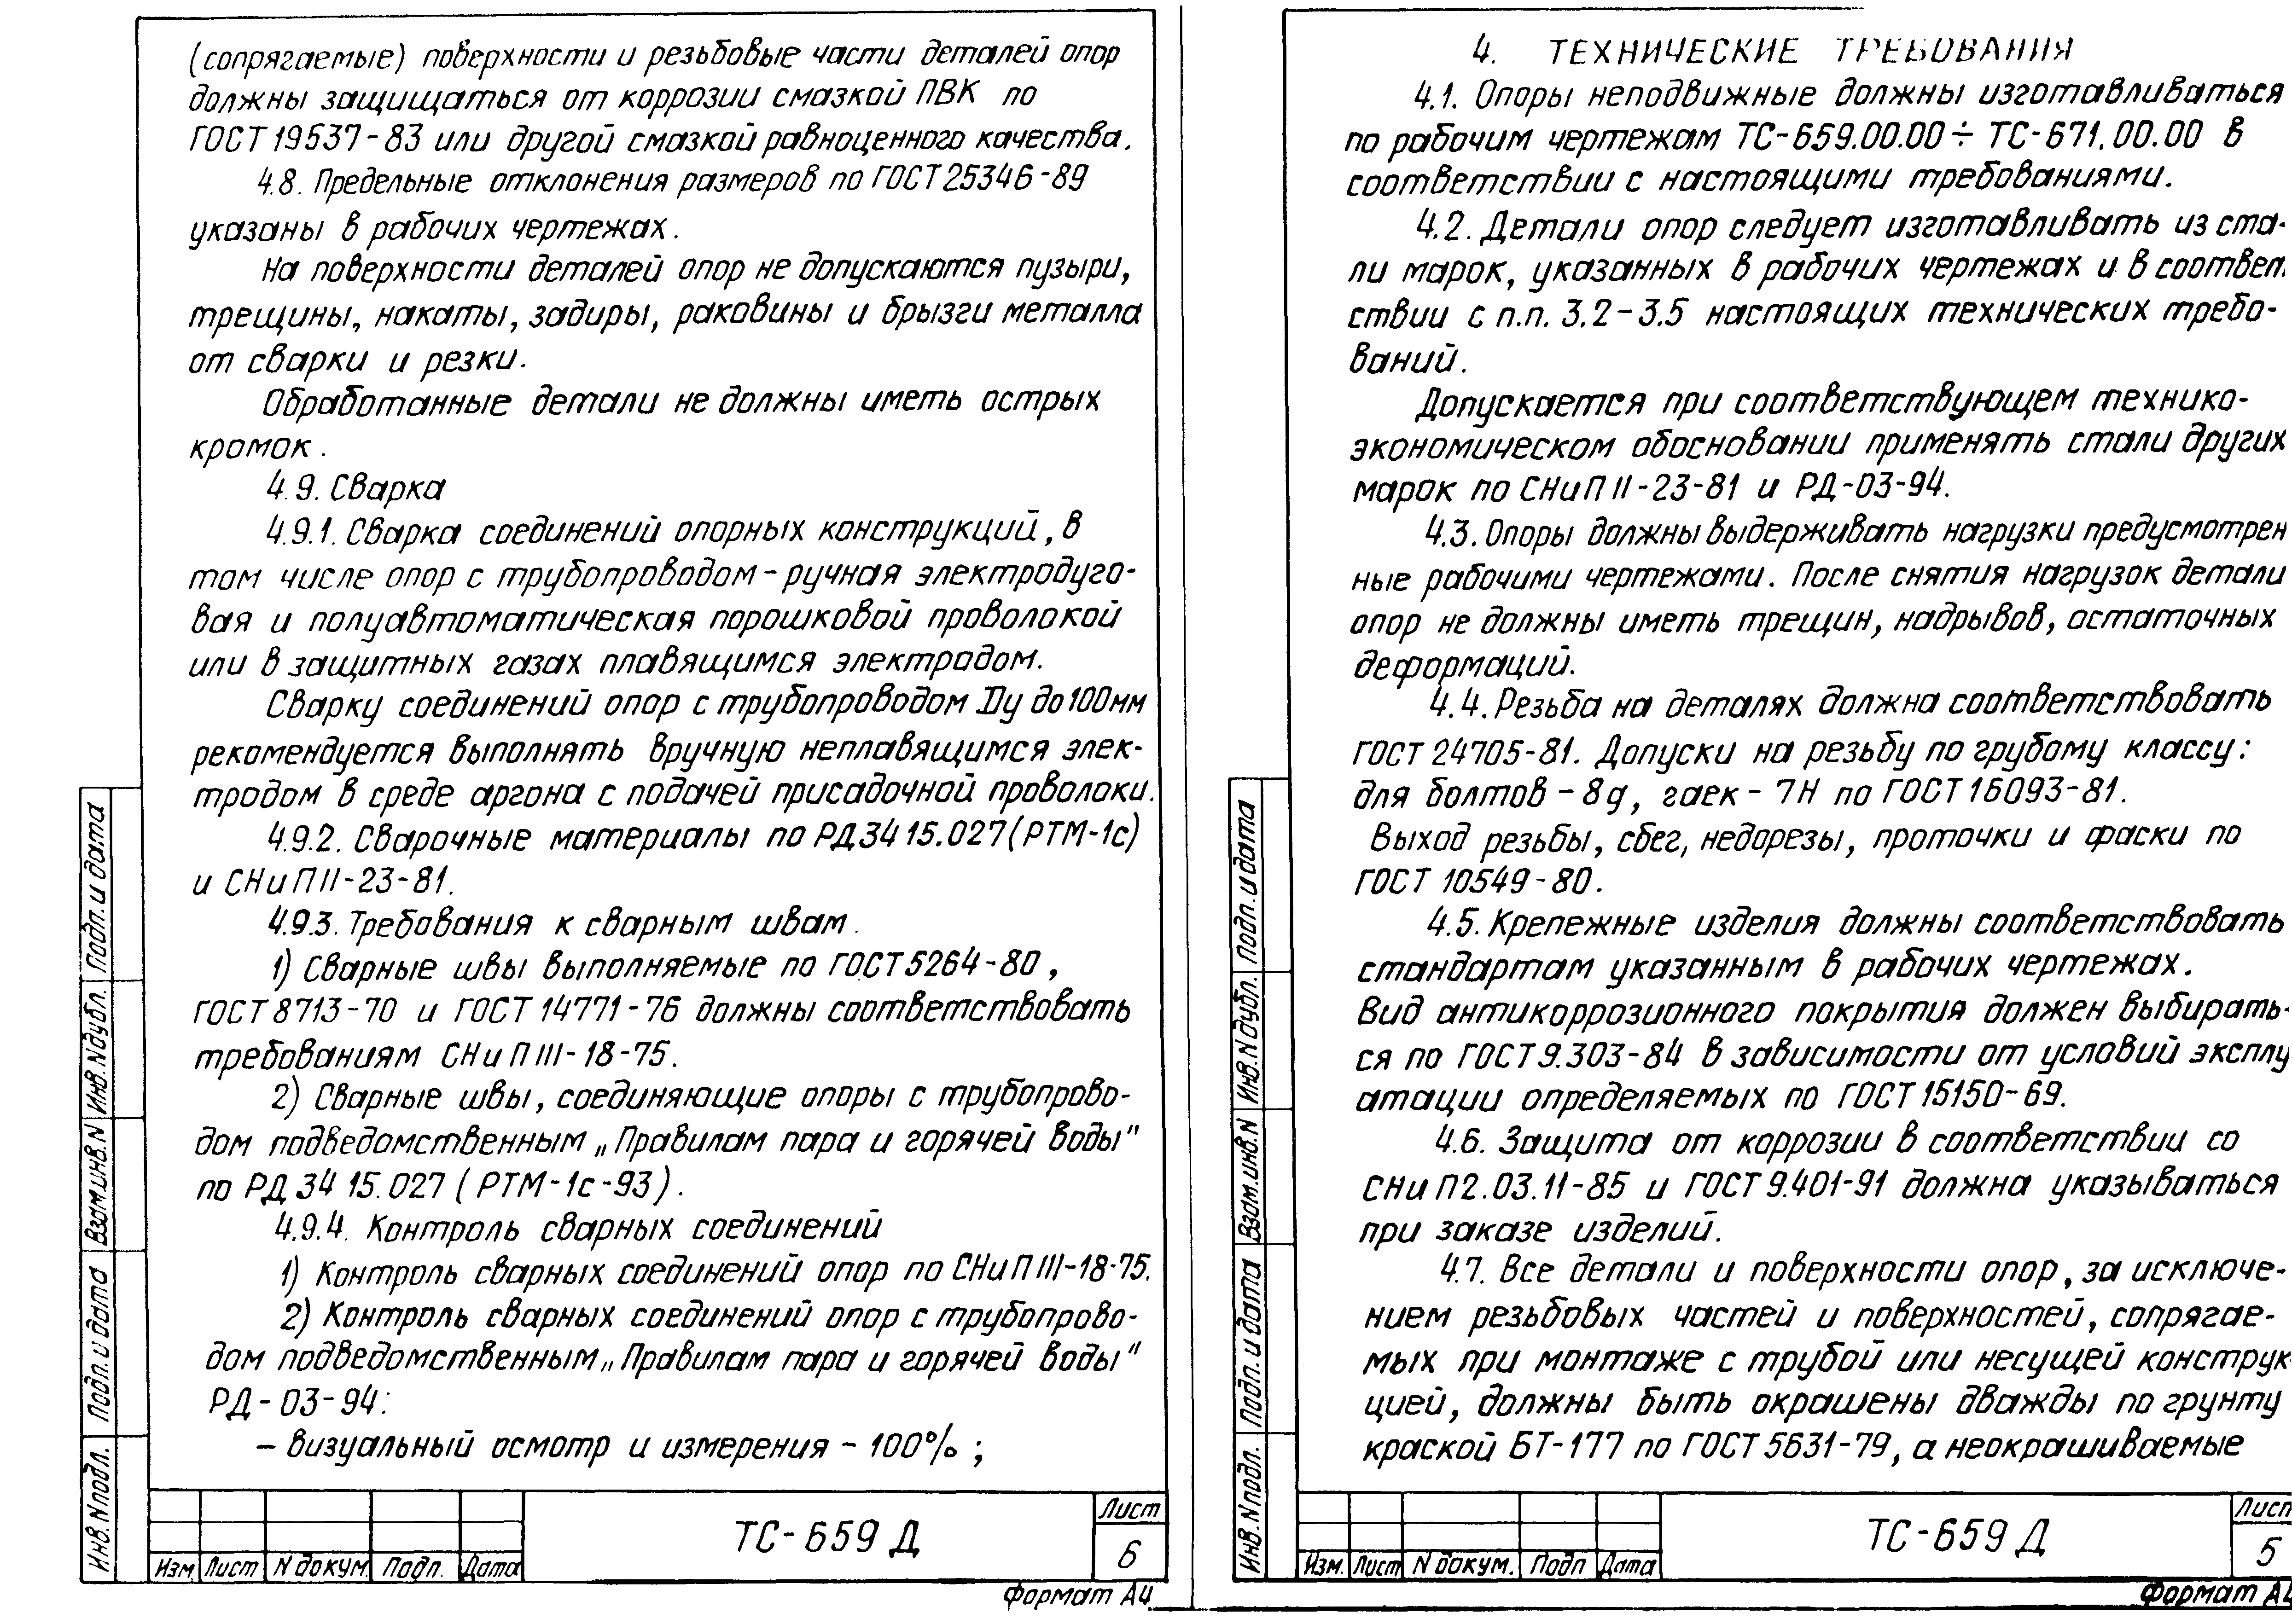 (сопрягаемые) поверхности и резьбовые части деталей опор
должны защищаться от коррозии смазкой ПВК по
ГОСТ 19537-83 или другой смазкой равноценного качества.
4.8. Предельные отклонения размеров по ГОСТ 25346-89
указаны в рабочих чертежах.
На поверхности деталей опор не допускаются пузыри,
трещины, накаты, задиры, раковины и брызги металла
от сварки и резки.
Обработанные детали не должны иметь острых
кромок.
4.9. Сварка
4.9.1. Сварка соединений опорных конструкций, в
том числе опор с трубопроводом - ручная электродуго-
вая и полуавтоматическая порошковой проволокой
или в защитных газах плавящимся электродом.
Сварку соединений опор с трубопроводом Ду до 100мм
рекомендуется выполнять вручную неплавящимся элек-
тродом в среде аргона с подачей присадочной проволоки.
4.9.2. Сварочные материалы по РД 34 15.027 (РТМ-1с)
и СНиП II-23-81.
4.9.3. Требования к сварным швам.
1) Сварные швы выполняемые по ГОСТ 5264-80,
ГОСТ 8713-70 и ГОСТ 14771-76 должны соответствовать
требованиям СНиП III-18-75.
2) Сварные швы, соединяющие опоры с трубопрово-
дом подведомственным „Правилам пара и горячей воды"
по РД 34 15.027 (РТМ-1с-93).
4.9.4. Контроль сварных соединений
1) Контроль сварных соединений опор по СНиП III-18-75.
2) Контроль сварных соединений опор с трубопрово-
дом подведомственным „Правилам пара и горячей воды"
РД-03-94:
- визуальный осмотр и измерения - 100%;
Инв. N подл. Подп. и дата Взам. инв. N Инв. N дубл. Подп. и дата
Изм Лист N докум. Подп. Дата
ТС-659 Д
Лист
6
Формат А4
4. ТЕХНИЧЕСКИЕ ТРЕБОВАНИЯ
4.1. Опоры неподвижные должны изготавливаться
по рабочим чертежам ТС-659.00.00 ÷ ТС-671.00.00 в
соответствии с настоящими требованиями.
4.2. Детали опор следует изготавливать из ста-
ли марок, указанных в рабочих чертежах и в соответ
ствии с п.п. 3.2-3.5 настоящих технических требо-
ваний.
Допускается при соответствующем технико-
экономическом обосновании применять стали других
марок по СНиП II-23-81 и РД-03-94.
4.3. Опоры должны выдерживать нагрузки предусмотрен
ные рабочими чертежами. После снятия нагрузок детали
опор не должны иметь трещин, надрывов, остаточных
деформаций.
4.4. Резьба на деталях должна соответствовать
ГОСТ 24705-81. Допуски на резьбу по грубому классу:
для болтов - 8g, гаек - 7H по ГОСТ 16093-81.
Выход резьбы, сбег, недорезы, проточки и фаски по
ГОСТ 10549-80.
4.5. Крепежные изделия должны соответствовать
стандартам указанным в рабочих чертежах.
Вид антикоррозионного покрытия должен выбирать-
ся по ГОСТ 9.303-84 в зависимости от условий эксплу
атации определяемых по ГОСТ 15150-69.
4.6. Защита от коррозии в соответствии со
СНиП 2.03.11-85 и ГОСТ 9.401-91 должна указываться
при заказе изделий.
4.7. Все детали и поверхности опор, за исключе-
нием резьбовых частей и поверхностей, сопрягае-
мых при монтаже с трубой или несущей конструк
цией, должны быть окрашены дважды по грунту
краской БТ-177 по ГОСТ 5631-79, а неокрашиваемые
Инв. N подл. Подп. и дата Взам. инв. N Инв. N дубл. Подп. и дата
Изм. Лист N докум. Подп Дата
ТС-659 Д
Лист
5
Формат А4